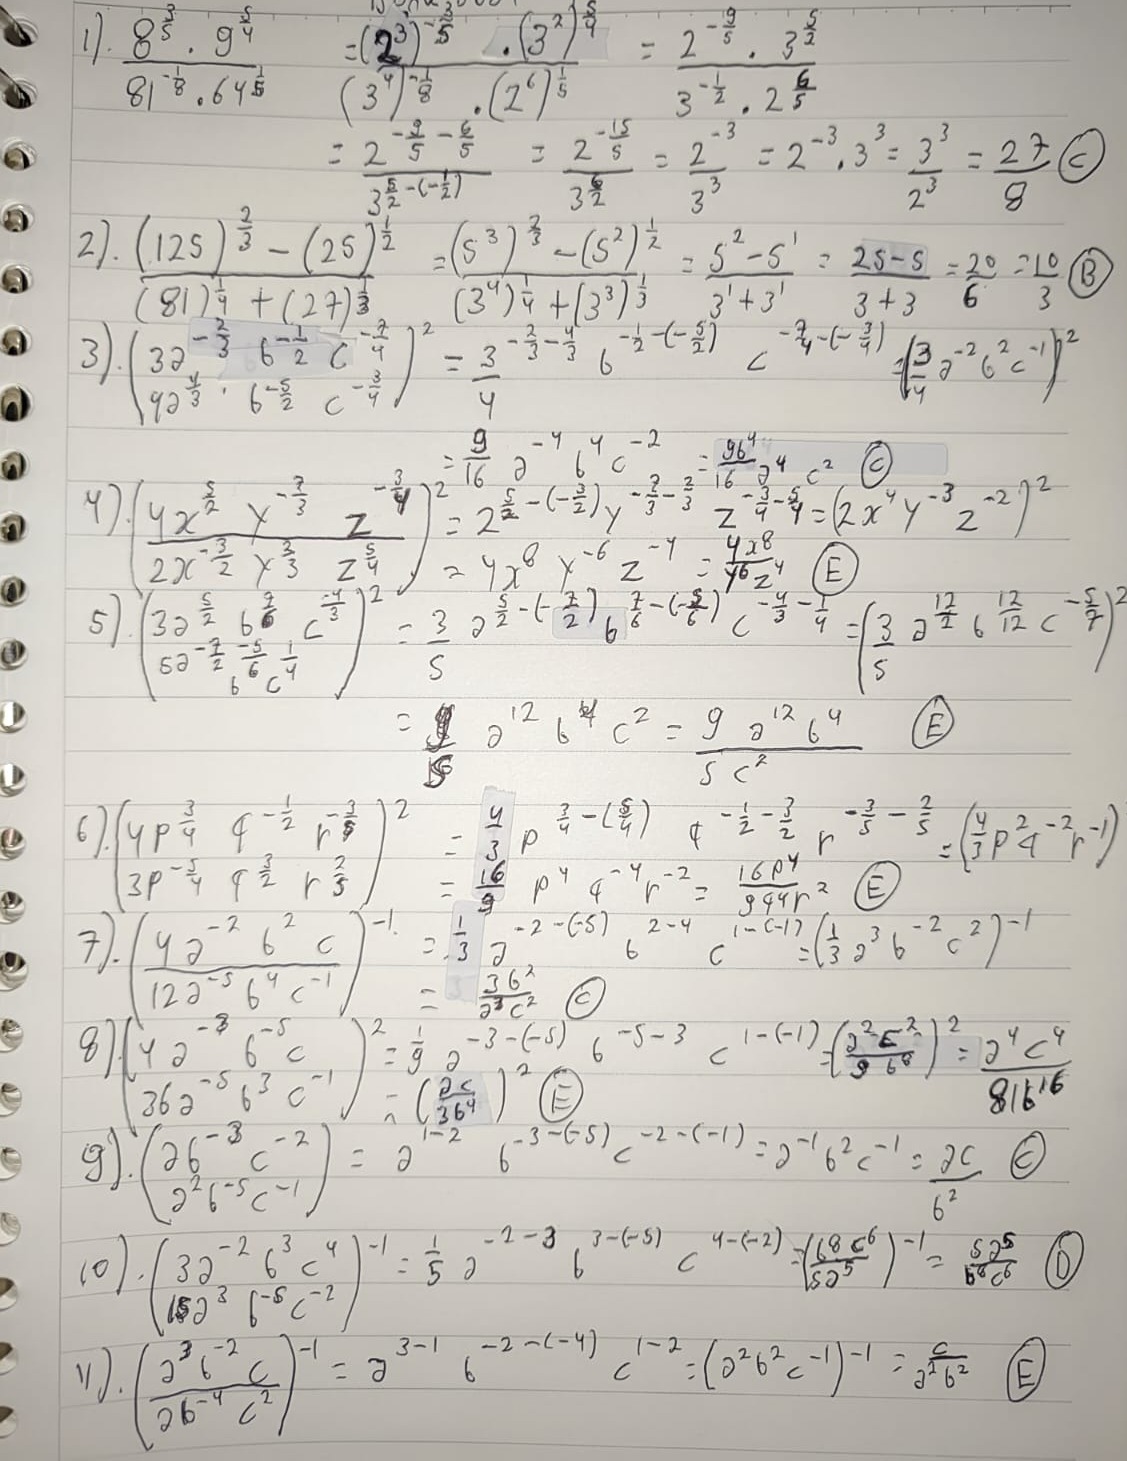 1). (8^(3/5) · 9^(5/4)) / (81^(-1/8) · 64^(1/5)) = ((2^3)^(-3/5) · (3^2)^(5/4)) / ((3^4)^(-1/8) · (2^6)^(1/5)) = (2^(-9/5) · 3^(5/2)) / (3^(-1/2) · 2^(6/5))
= 2^(-9/5 - 6/5) / 3^(5/2 - (-1/2)) = 2^(-15/5) / 3^(6/2) = 2^-3 / 3^3 = 2^-3 . 3^3 = 3^3 / 2^3 = 27/8 (C)
2). ((125)^(2/3) - (25)^(1/2)) / ((81)^(1/4) + (27)^(1/3)) = ((5^3)^(2/3) - (5^2)^(1/2)) / ((3^4)^(1/4) + (3^3)^(1/3)) = (5^2 - 5^1) / (3^1 + 3^1) = (25 - 5) / (3 + 3) = 20/6 = 10/3 (B)
3). (3a^(-2/3) b^(-1/2) c^(-7/4) / 9a^(4/3) · b^(-5/2) c^(-3/4))^2 = 3/4 ^(-2/3 - 4/3) b^(-1/2 - (-5/2)) c^(-7/4 - (-3/4)) = (3/4 a^-2 b^2 c^-1)^2
= 9/16 a^-4 b^4 c^-2 = 9b^4 / 16 a^4 c^2 (C)
4). (4x^(5/2) y^(-7/3) z^(-3/4) / 2x^(-3/2) y^(2/3) z^(5/4))^2 = 2^(5/2 - (-3/2)) y^(-7/3 - 2/3) z^(-3/4 - 5/4) = (2x^4 y^-3 z^-2)^2
= 4x^8 y^-6 z^-4 = 4x^8 / y^6 z^4 (E)
5). (3a^(5/2) b^(7/6) c^(-4/3) / 5a^(-7/2) b^(-5/6) c^(1/4))^2 = 3/5 a^(5/2 - (-7/2)) b^(7/6 - (-5/6)) c^(-4/3 - 1/4) = (3/5 a^(12/2) b^(12/12) c^(-5/7))^2
= 9/5 a^12 b^4 c^2 = 9 a^12 b^4 / 5 c^2 (E)
6). (4p^(3/4) q^(-1/2) r^(-3/5) / 3p^(-5/4) q^(3/2) r^(2/5))^2 = 4/3 p^(3/4 - (5/4)) q^(-1/2 - 3/2) r^(-3/5 - 2/5) = (4/3 p^2 q^-2 r^-1)
= 16/9 p^4 q^-4 r^-2 = 16p^4 / 9q^4r^2 (E)
7). (4a^-2 b^2 c / 12a^-5 b^4 c^-1)^-1 = 1/3 a^(-2-(-5)) b^(2-4) c^(1-(-1)) = (1/3 a^3 b^-2 c^2)^-1
= 3b^2 / a^3 c^2 (C)
8). (4a^-3 b^-5 c / 36a^-5 b^3 c^-1)^2 = 1/9 a^(-3-(-5)) b^(-5-3) c^(1-(-1)) = (a^2 c^2 / 9 b^8)^2 = a^4 c^4 / 81b^16
= (ac / 3b^4)^2 (E)
9). (ab^-3 c^-2 / a^2 b^-5 c^-1) = a^(1-2) b^(-3-(-5)) c^(-2-(-1)) = a^-1 b^2 c^-1 = ac / b^2 (C)
10). (3a^-2 b^3 c^4 / 15a^3 b^-5 c^-2)^-1 = 1/5 a^(-2-3) b^(3-(-5)) c^(4-(-2)) = (b^8 c^6 / 5a^5)^-1 = 5a^5 / b^8 c^6 (D)
11). (a^3 b^-2 c / ab^-4 c^2)^-1 = a^(3-1) b^(-2-(-4)) c^(1-2) = (a^2 b^2 c^-1)^-1 = c / a^2 b^2 (E)